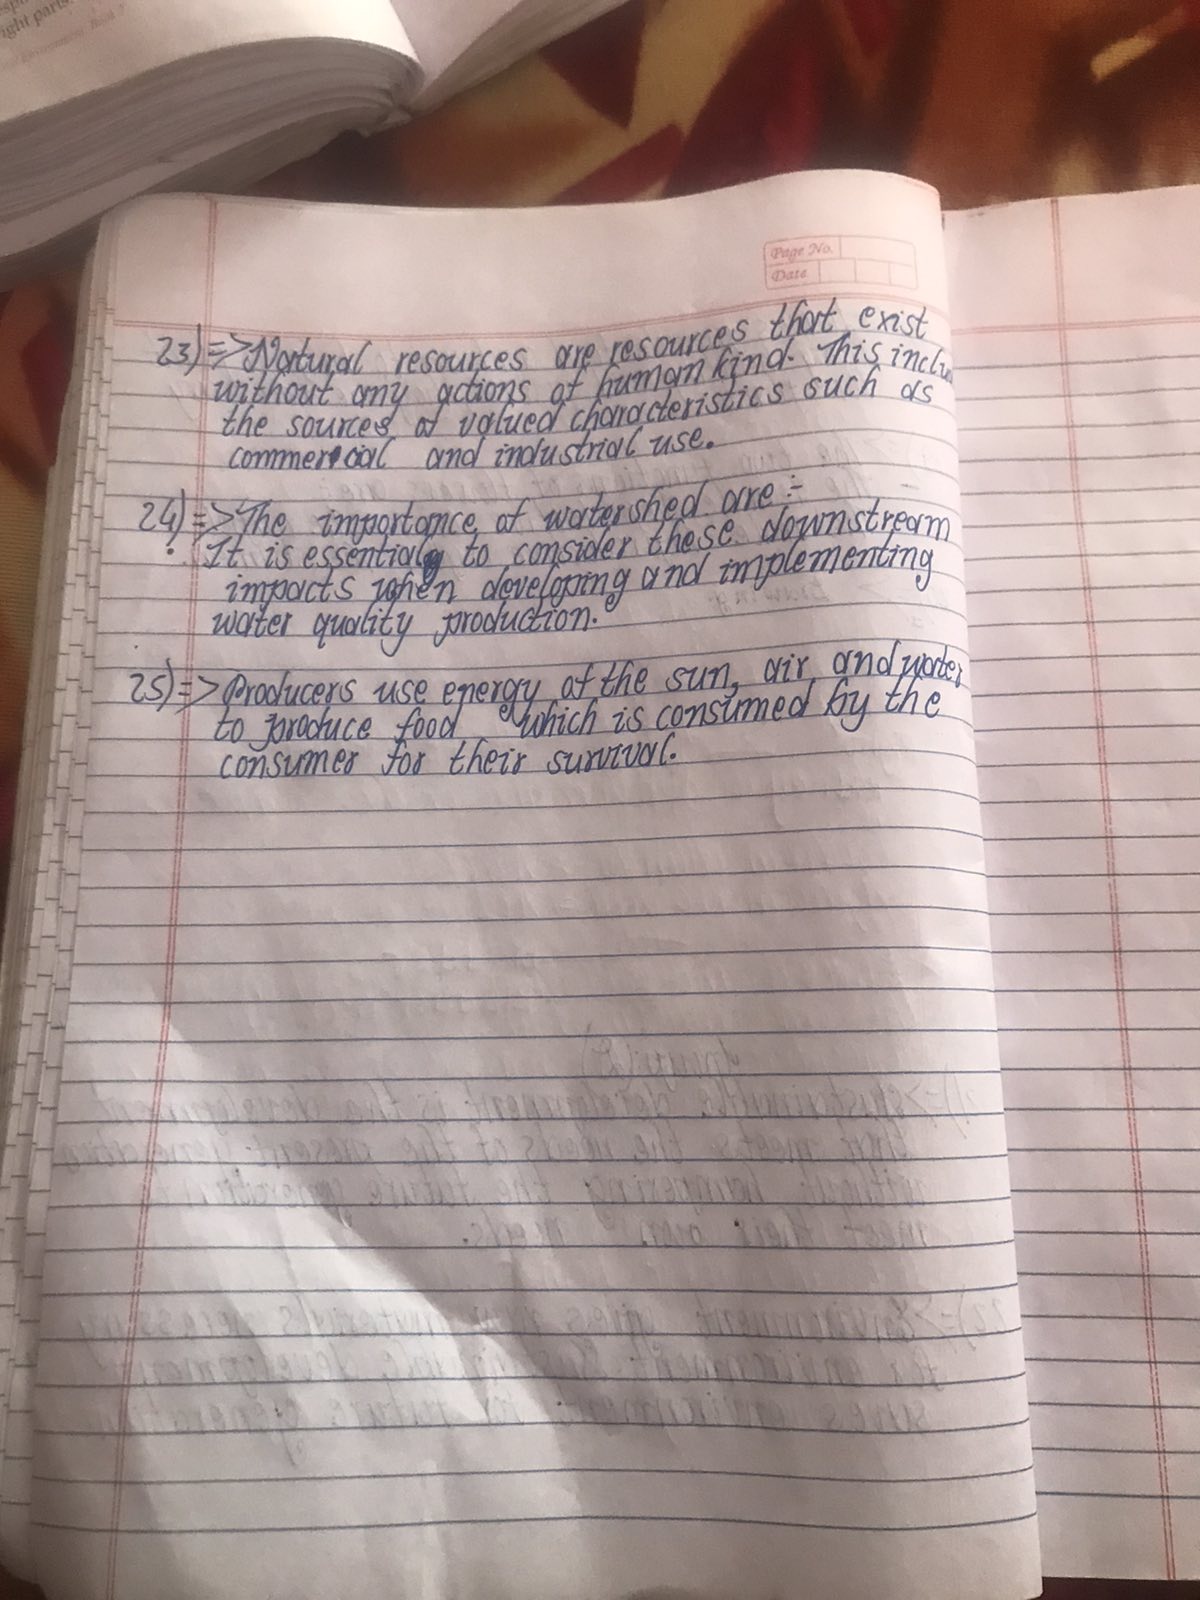 ight parts.
Page No.
Date
23) => Natural resources are resources that exist
without any actions of humankind. This inclu
the sources of valued characteristics such as
commercial and industrial use.
24) => The importance of watershed are :-
It is essential to consider these downstream
impacts when developing and implementing
water quality production.
25) => Producers use energy of the sun, air and water
to produce food which is consumed by the
consumer for their survival.